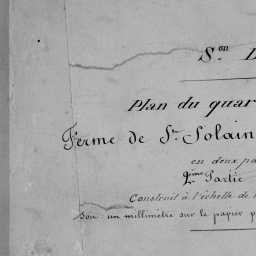 S.on
Plan du quar
Ferme de St. Solain
en deux pa
2ème Partie
Construit à l'échelle de
Soit un millimètre sur le papier p